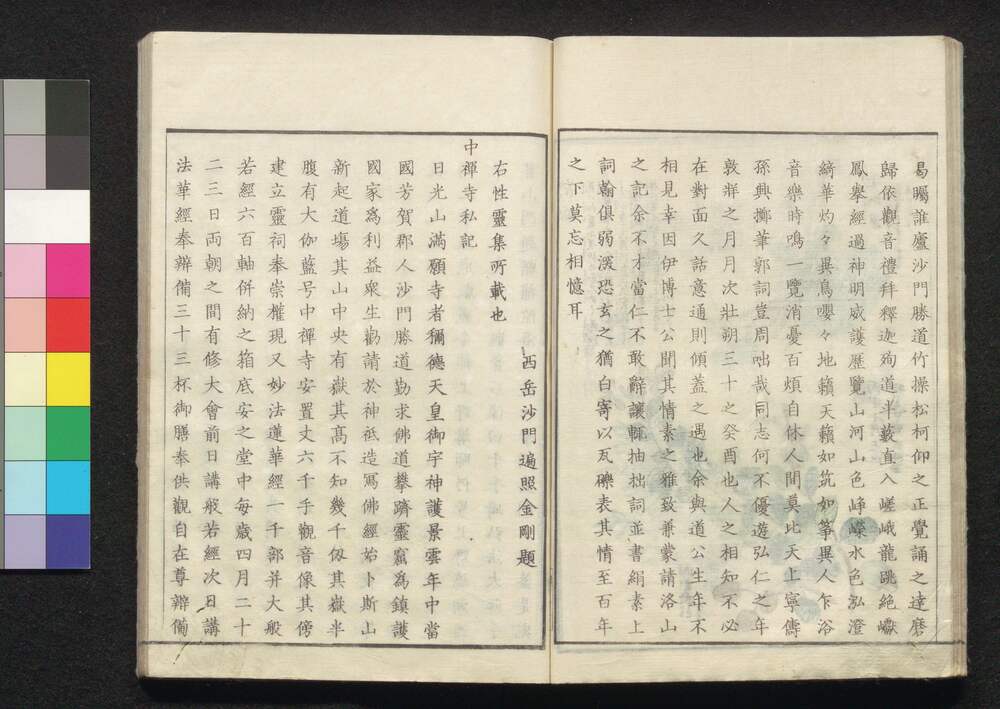 曷矚誰廬沙門勝道竹操松柯仰之正覺誦之達磨
歸依觀音禮拜釋迦殉道半藪直入嵯峨龍跳絶巘
鳳擧經過神明威護歷覽山河山色崢嶸水色泓澄
綺華灼々異鳥嚶々地籟天籟如筑如箏異人乍浴
音樂時鳴一覽消憂百煩自休人間莫比天上寧儔
孫興擲筆郭詞豈周咄哉同志何不優遊弘仁之年
敦牂之月月次壯朔三十之癸酉也人之相知不必
在對面久話意通則傾蓋之遇也余與道公生年不
相見幸因伊博士公聞其情素之雅致兼蒙請洛山
之記余不才當仁不敢辭讓輒抽拙詞並書絹素上
詞翰俱弱深恐玄之猶白寄以瓦礫表其情至百年
之下莫忘相憶耳
西岳沙門遍照金剛題
右性靈集所載也
中禪寺私記
日光山滿願寺者稱德天皇御宇神護景雲年中當
國芳賀郡人沙門勝道勤求佛道攀躋靈窟爲鎮護
國家爲利益衆生勸請於神祇造冩佛經始卜斯山
新起道塲其山中央有嶽其髙不知幾千仭其嶽半
腹有大伽藍号中禪寺安置丈六千手觀音像其傍
建立靈祠奉崇權現又妙法蓮華經一千部并大般
若經六百軸併納之箱底安之堂中每歲四月二十
二三日両朝之間有修大會前日講般若經次日講
法華經奉辨備三十三杯御膳奉供觀自在尊辨備